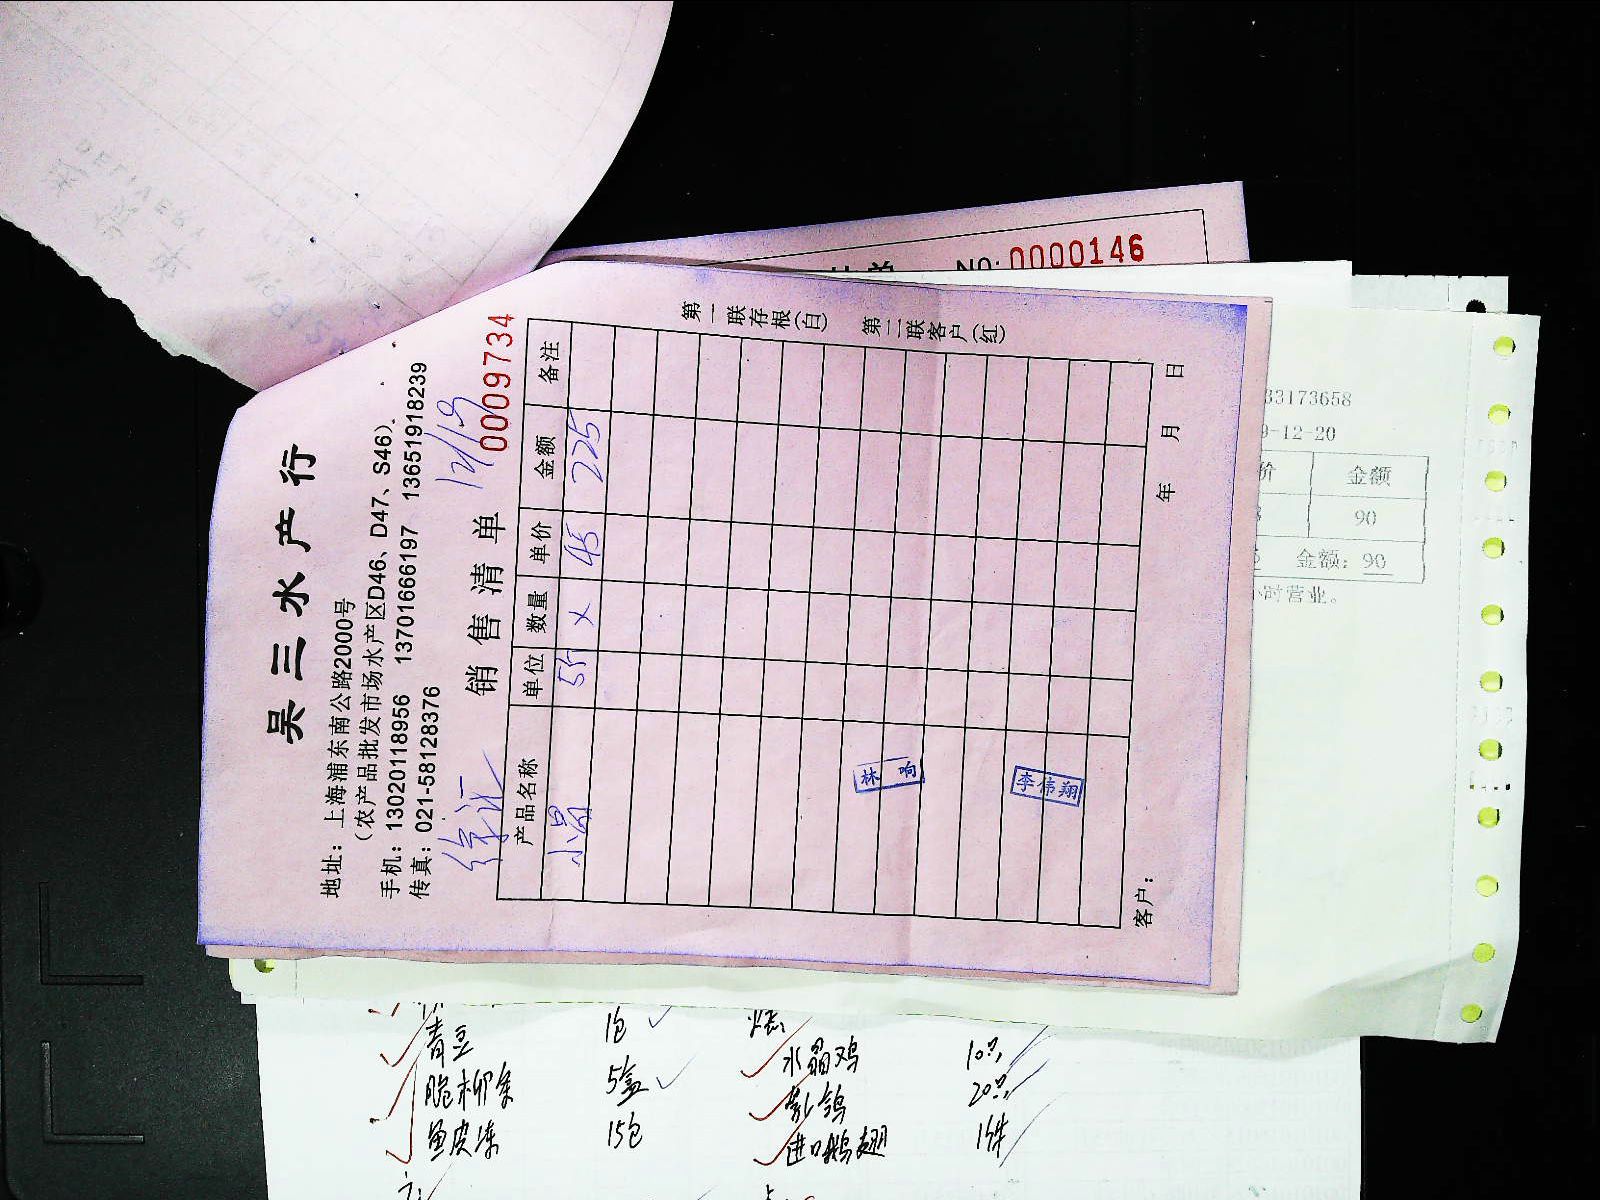 吴三水产行
地址：上海浦东南公路2000号
（农产品批发市场水产区D46、D47、S46）
手机：13020118956 13701666197 13651918239
传真：021-58128376
徐汇
销售清单
12/19
0009734
产品名称 单位 数量 单价 金额 备注
小晶 5斤 × 45 225
林响
李伟翔
第一联存根(白) 第二联客户(红)
客户： 年 月 日
NO: 0000146
33173658
9-12-20
价 金额
90
金额：90
小时营业。
DELIVER
青豆 1包
脆柳条 5盒
鱼皮冻 15包
水晶鸡 10只
乳鸽 20只
进口鹅翅 1件